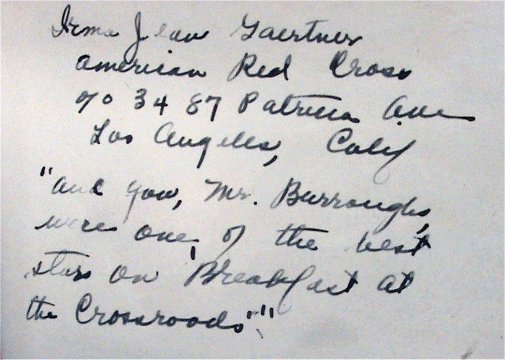 Irma Jean Gaertner
American Red Cross
c/o 3487 Patricia Ave
Los Angeles, Calif
"and you, Mr. Burroughs,
were one of the best
stars on 'Breakfast at
the Crossroads'"